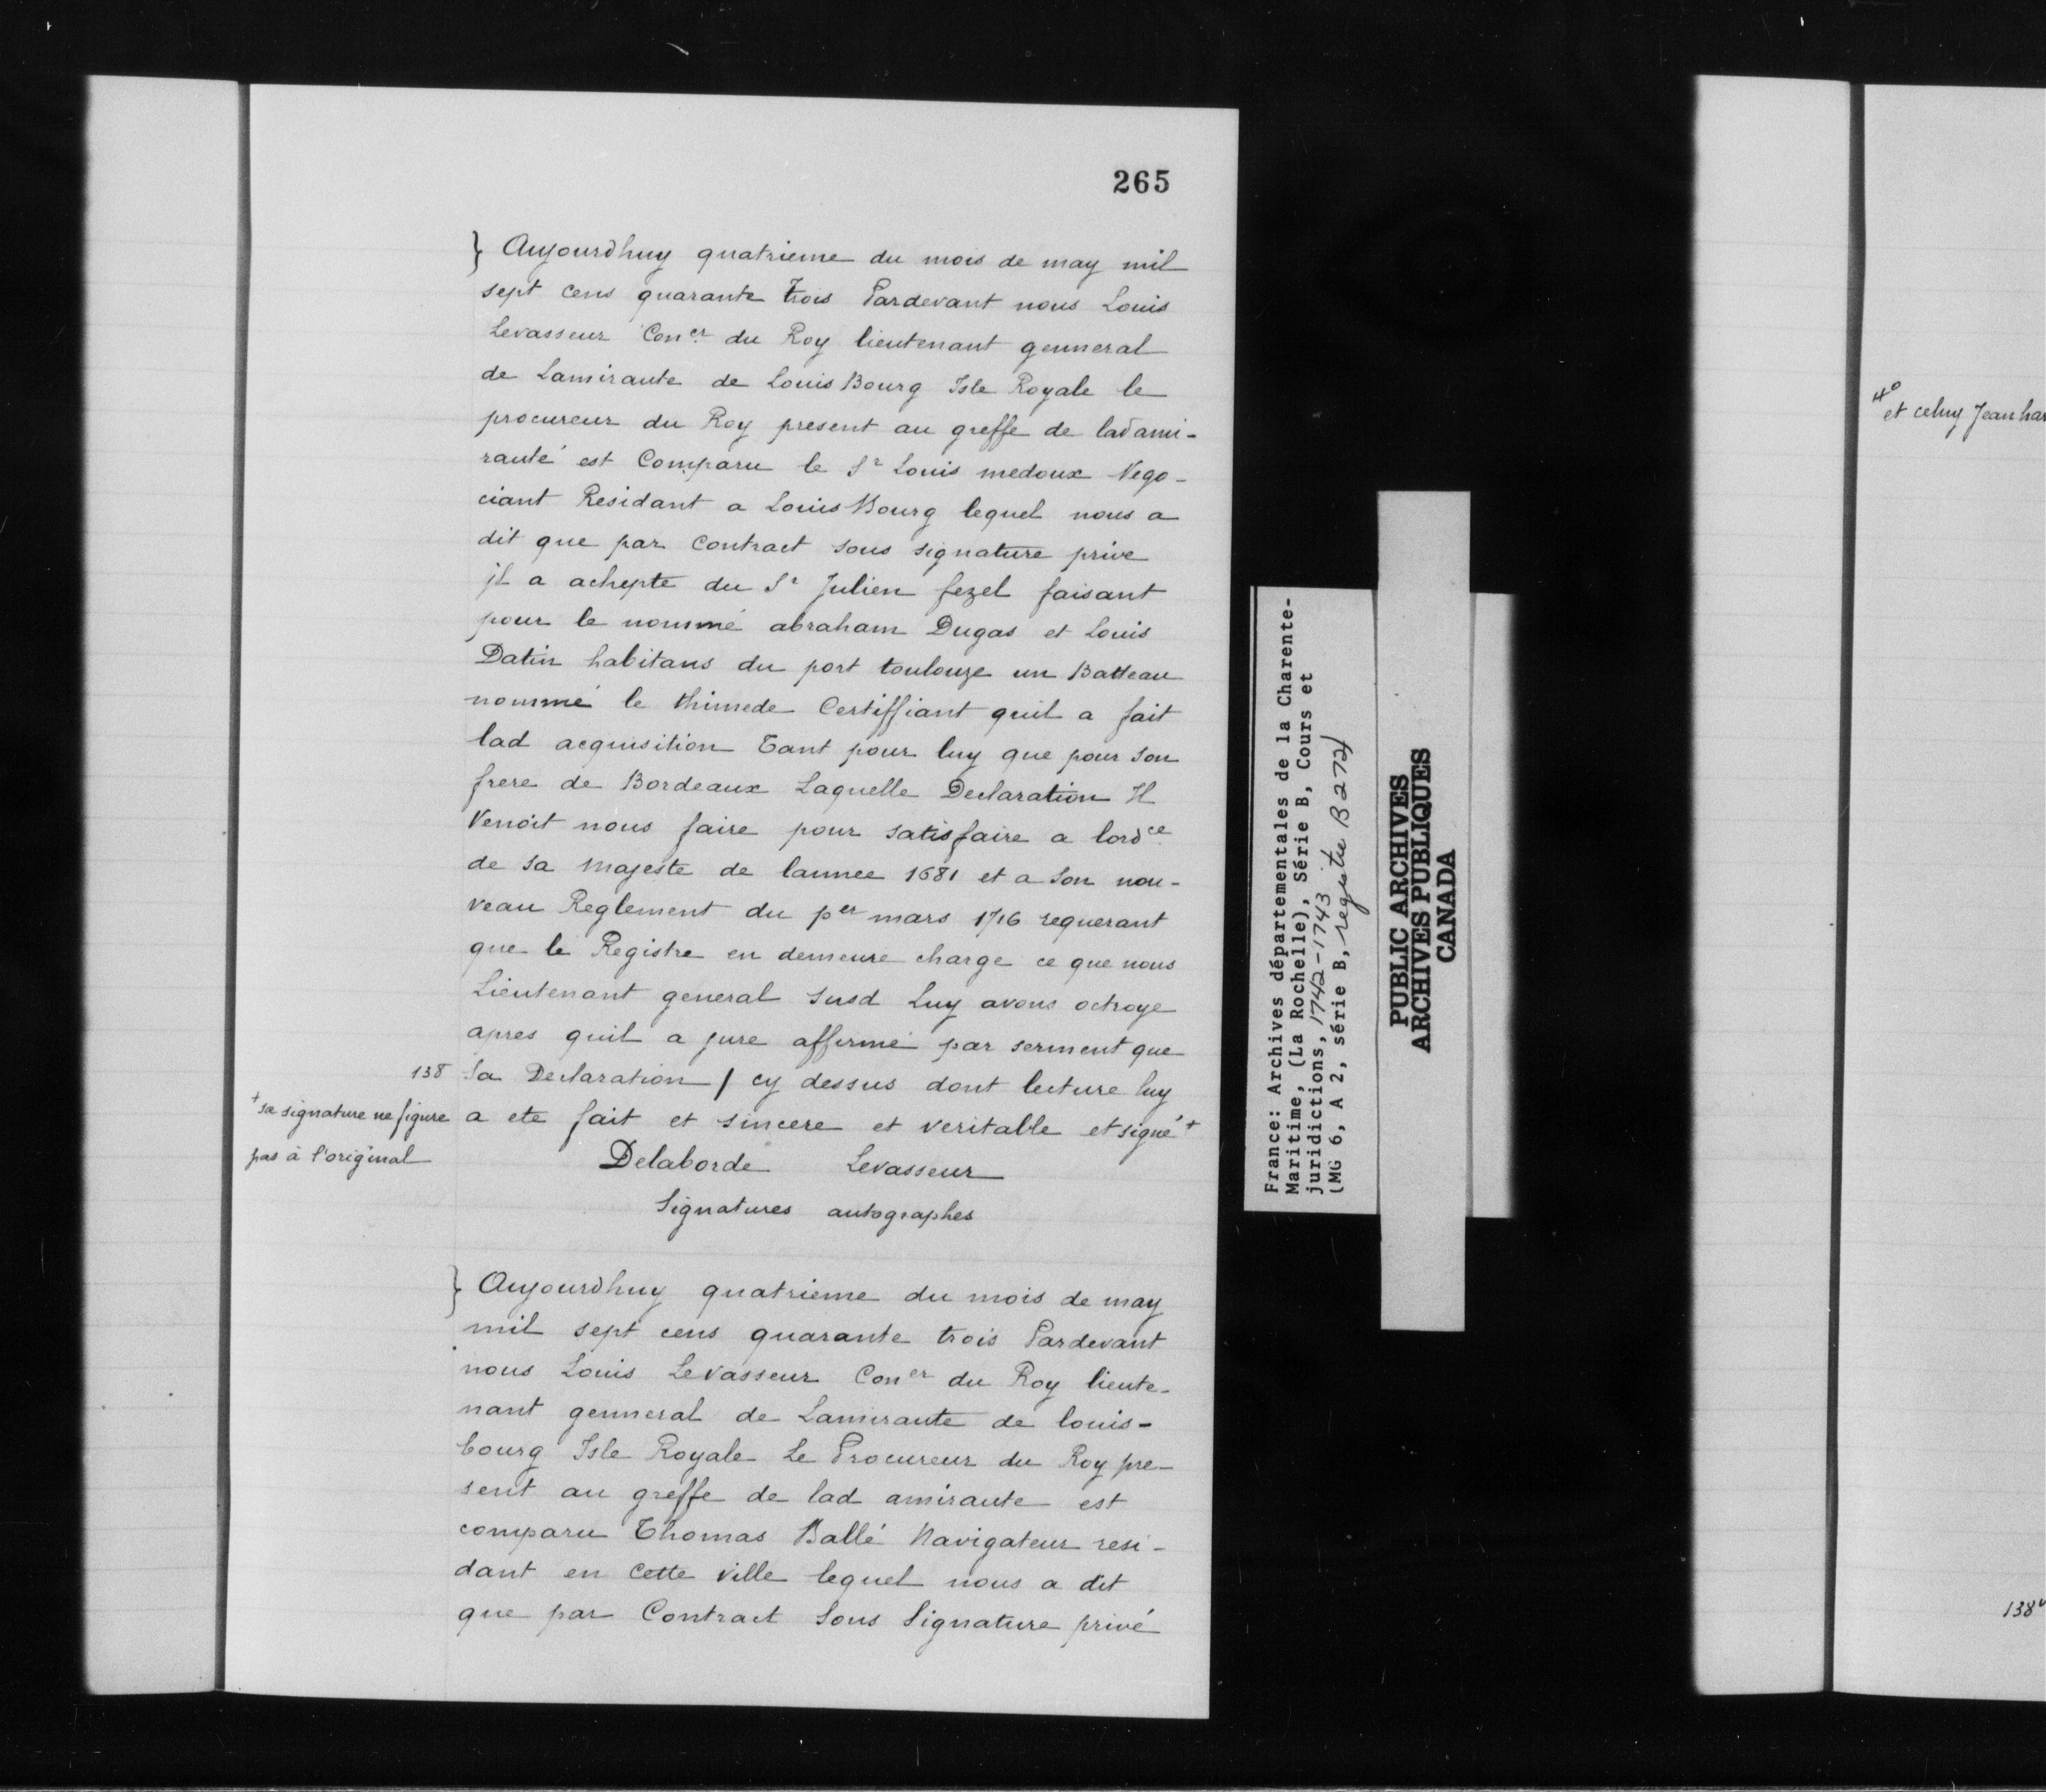 265
} Aujourdhuy quatrieme du mois de may mil
sept cens quarante trois Pardevant nous Louis
Levasseur Con.er du Roy lieutenant genneral
de Lamiraute de LouisBourg Isle Royale le
procureur du Roy present au greffe de lad ami-
rauté est Comparu le Sr Louis medoux Nego-
ciant Residant a LouisBourg lequel nous a
dit que par contract sous signature prive
jl a achepte du Sr Julien fezel faisant
pour le nommé abraham Dugas et Louis
Datin habitans du port toulouze un Batteau
nommé le thimede Certiffiant quil a fait
lad acquisition Tant pour luy que pour son
frere de Bordeaux Laquelle Declaration Il
Venoit nous faire pour satisfaire a lordce
de sa Majeste de lannee 1681 et a son nou-
veau Reglement du per mars 1716 requerant
que le Registre en demeure charge ce que nous
Lieutenant general susd Luy avons octroye
apres quil a jure affirmé par serment que
138 Sa Declaration / cy dessus dont lecture luy
a ete fait et sincere et veritable et signé +
+ sa signature ne figure
pas à l'original
Delaborde Levasseur
Signatures autographes
} Aujourdhuy quatrieme du mois de may
mil sept cens quarante trois Pardevant
nous Louis Levasseur Coner du Roy lieute-
nant genneral de Lamiraute de louis-
bourg Isle Royale Le Procureur du Roy pre-
sent au greffe de lad amiraute est
comparu Thomas Ballé Navigateur resi-
dant en cette ville lequel nous a dit
que par Contract Sous Signature privé
France: Archives départementales de la Charente-
Maritime, (La Rochelle), Série B, Cours et
juridictions, 1742-1743
(MG 6, A 2, série B, registre B 272)
PUBLIC ARCHIVES
ARCHIVES PUBLIQUES
CANADA
et celuy Jean har
138v